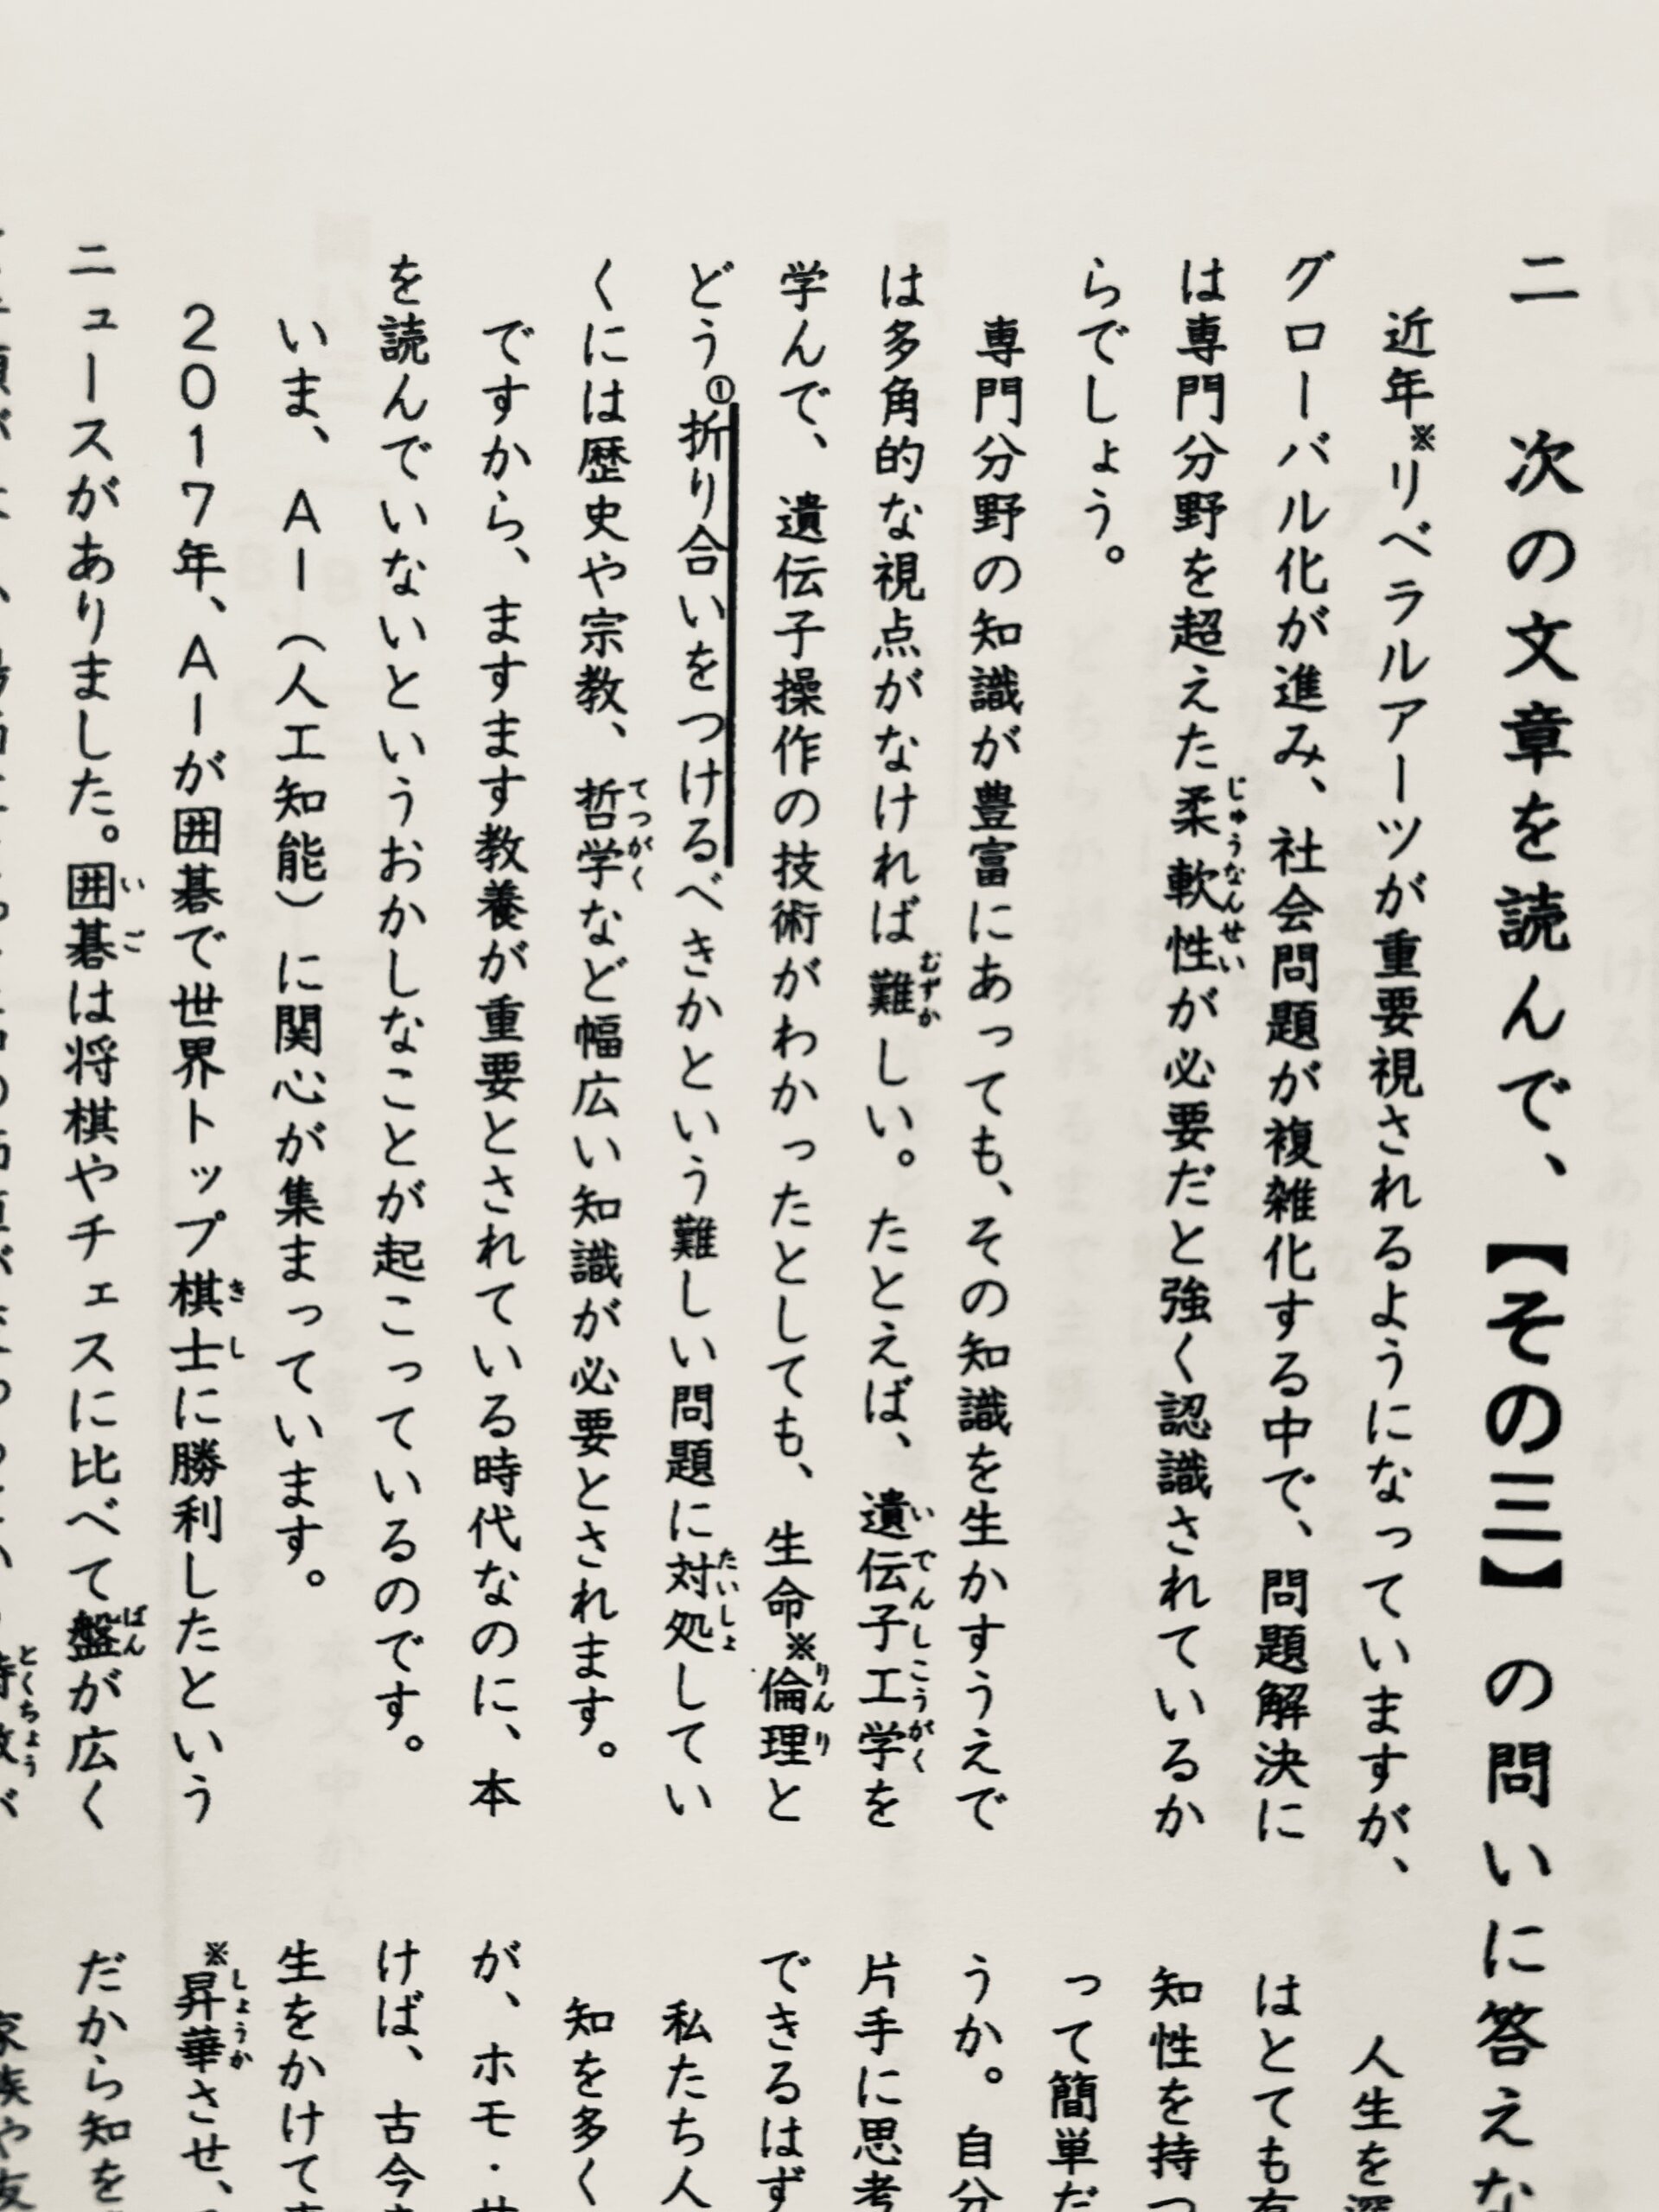 二 次の文章を読んで、【その三】の問いに答えな
近年※リベラルアーツが重要視されるようになっていますが、
グローバル化が進み、社会問題が複雑化する中で、問題解決に
は専門分野を超えた柔軟性が必要だと強く認識されているか
らでしょう。
専門分野の知識が豊富にあっても、その知識を生かすうえで
は多角的な視点がなければ難しい。たとえば、遺伝子工学を
学んで、遺伝子操作の技術がわかったとしても、生命※倫理と
どう①折り合いをつけるべきかという難しい問題に対処してい
くには歴史や宗教、哲学など幅広い知識が必要とされます。
ですから、ますます教養が重要とされている時代なのに、本
を読んでいないというおかしなことが起こっているのです。
いま、AI(人工知能)に関心が集まっています。
2017年、AIが囲碁で世界トップ棋士に勝利したという
ニュースがありました。囲碁は将棋やチェスに比べて盤が広く
人生を深
はとても有
知性を持つ
って簡単だ
うか。自分
片手に思考
できるはず
私たち人
知を多く
が、ホモ・サ
けば、古今
生をかけて
※昇華させ、
だから知を
家族や友